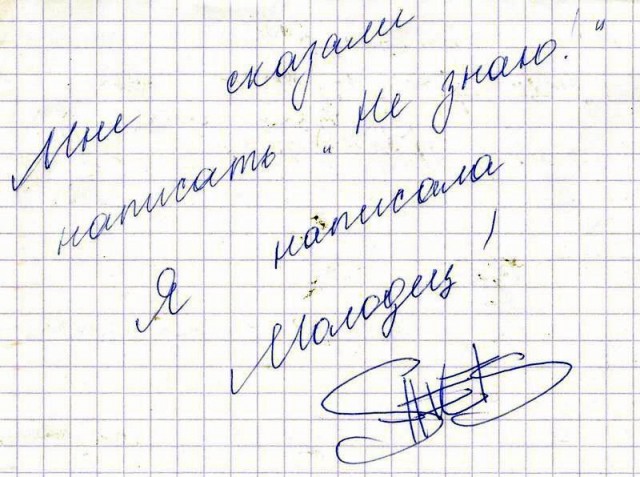 Мне сказали
написать „Не знаю!“
Я написала
Молодец!